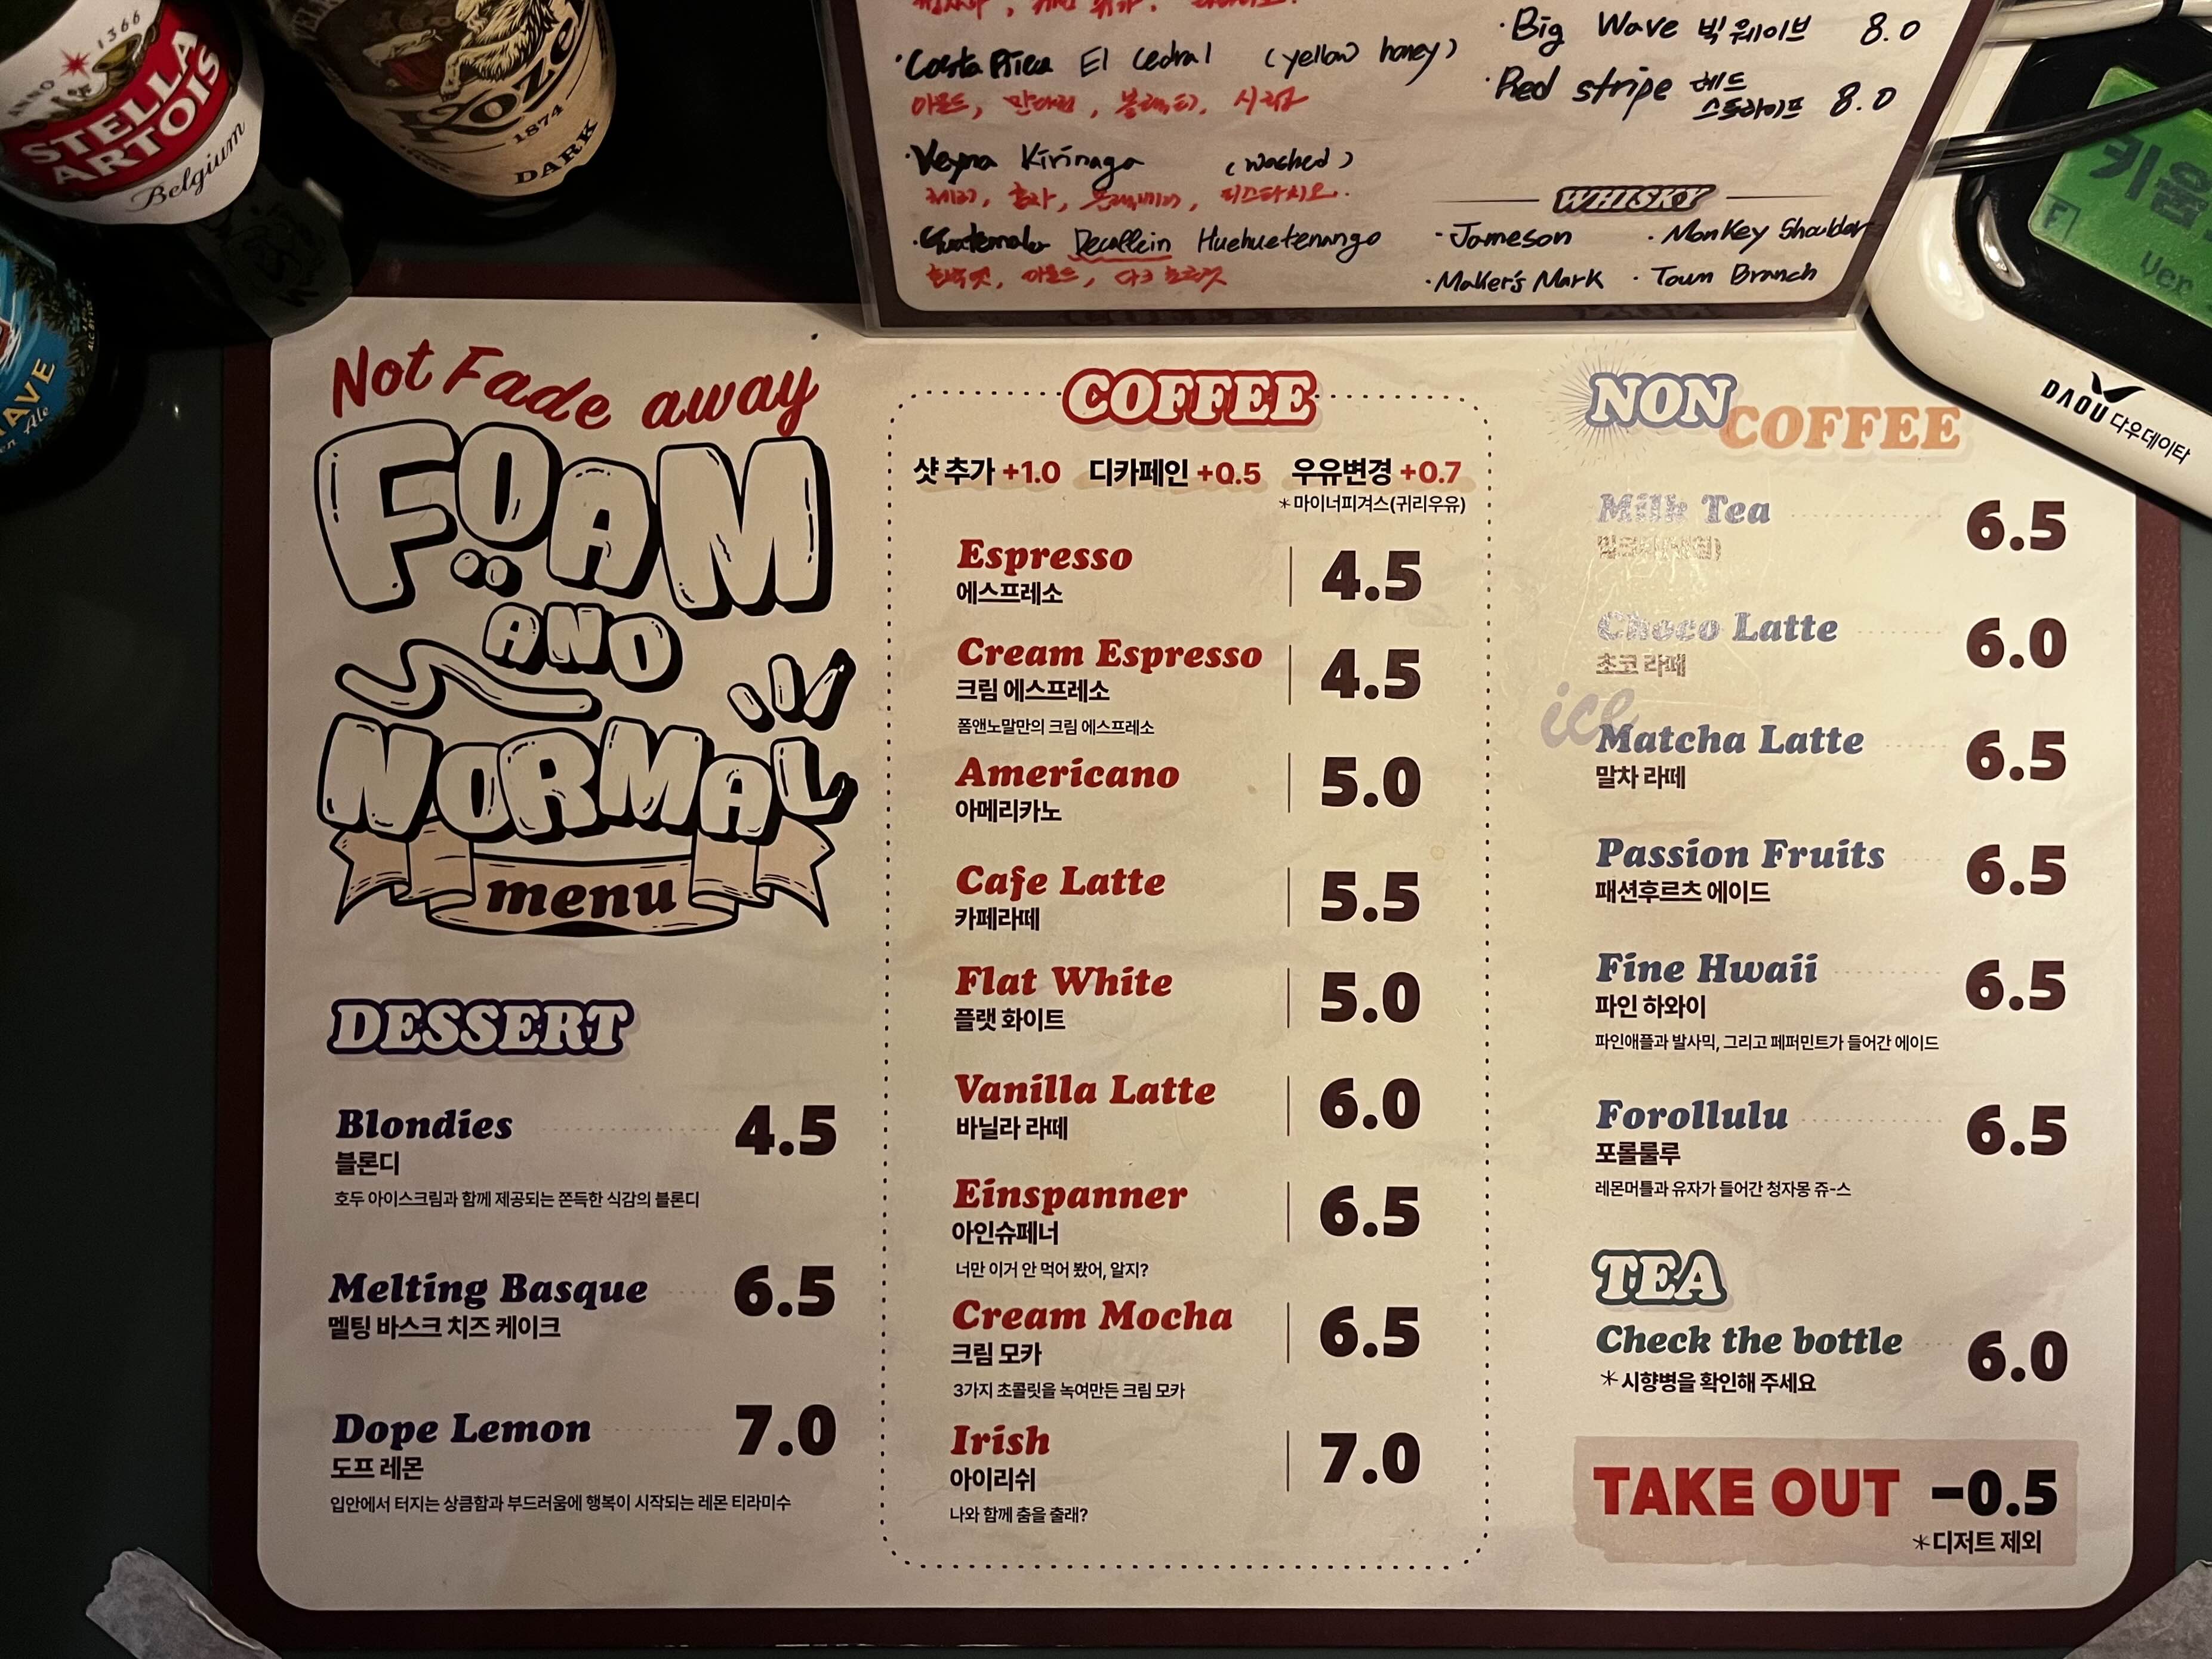 ANNO 1366
STELLA
ARTOIS
Belgium
KOZEL
1874
DARK
WAVE
Ale
· Costa Rica El Cedral (yellow honey)
아몬드, 만다린, 블랙티, 시럽
· Kenya Kirinaga (washed)
체리, 홍차, 블랙베리, 피스타치오.
· Guatemala Decaffein Huehuetenango
아몬드, 다크 초콜릿
· Big Wave 빅 웨이브 8.0
· Red stripe 레드 스트라이프 8.0
WHISKY
· Jameson · Monkey Shoulder
· Maker's Mark · Town Branch
F
키움
Ver
DAOU 다우데이타
Not Fade away
FOAM
AND
NORMAL
menu
DESSERT
Blondies 4.5
블론디
호두 아이스크림과 함께 제공되는 쫀득한 식감의 블론디
Melting Basque 6.5
멜팅 바스크 치즈 케이크
Dope Lemon 7.0
도프 레몬
입안에서 터지는 상큼함과 부드러움에 행복이 시작되는 레몬 티라미수
COFFEE
샷 추가 +1.0 디카페인 +0.5 우유변경 +0.7
*마이너피겨스(귀리우유)
Espresso 4.5
에스프레소
Cream Espresso 4.5
크림 에스프레소
폼앤노말만의 크림 에스프레소
Americano 5.0
아메리카노
Cafe Latte 5.5
카페라떼
Flat White 5.0
플랫 화이트
Vanilla Latte 6.0
바닐라 라떼
Einspanner 6.5
아인슈페너
너만 이거 안 먹어 봤어, 알지?
Cream Mocha 6.5
크림 모카
3가지 초콜릿을 녹여만든 크림 모카
Irish 7.0
아이리쉬
나와 함께 춤을 출래?
NON
COFFEE
Milk Tea 6.5
Choco Latte 6.0
초코 라떼
ice
Matcha Latte 6.5
말차 라떼
Passion Fruits 6.5
패션후르츠 에이드
Fine Hwaii 6.5
파인 하와이
파인애플과 발사믹, 그리고 페퍼민트가 들어간 에이드
Forollulu 6.5
포롤룰루
레몬머틀과 유자가 들어간 청자몽 쥬-스
TEA
Check the bottle 6.0
*시향병을 확인해 주세요
TAKE OUT -0.5
*디저트 제외